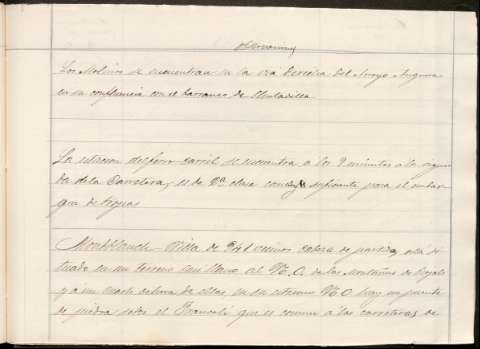 Observaciones
Los Molinos se encuentran en la orilla derecha del Arroyo Anguera
en su confluencia con el barranco de
La estacion del ferro carril se encuentra a los 9 minutos a la izquier
da de la Carretera, es de 2ª clase con suficiente para el embar
que de tropas
Montblanch Villa de 941 vecinos cabeza de partido, está si
tuado en un terreno casi llano al N.O. de las Montañas de
y a un cuarto de hora de ellas, en su estremo N.O. hay un puente
de piedra sobre el Francolí que es comun a las carreteras de